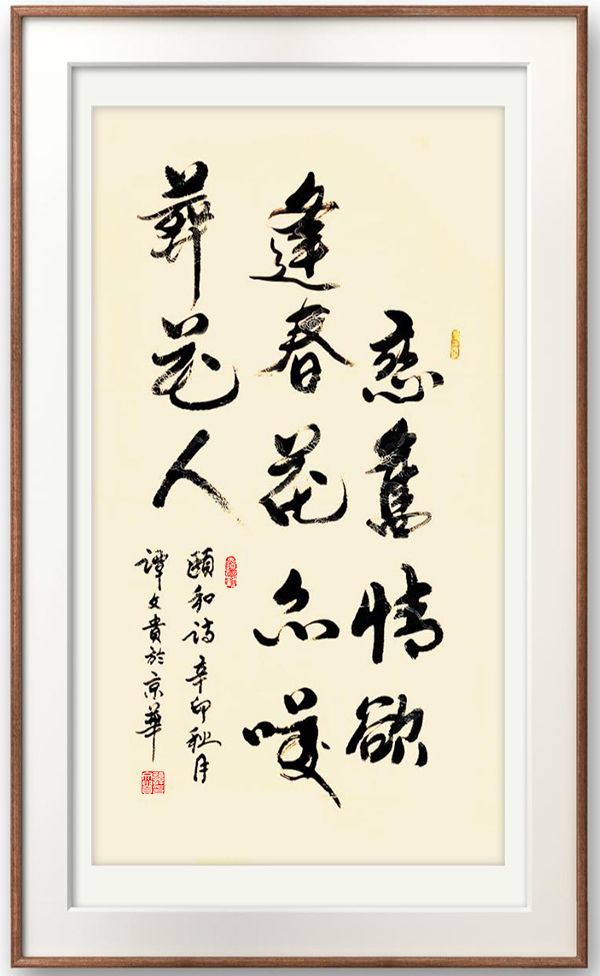 恋舊情欲
逢春花亦嘆
葬花人
頤和诗辛卯秋月
譚文貴於京華